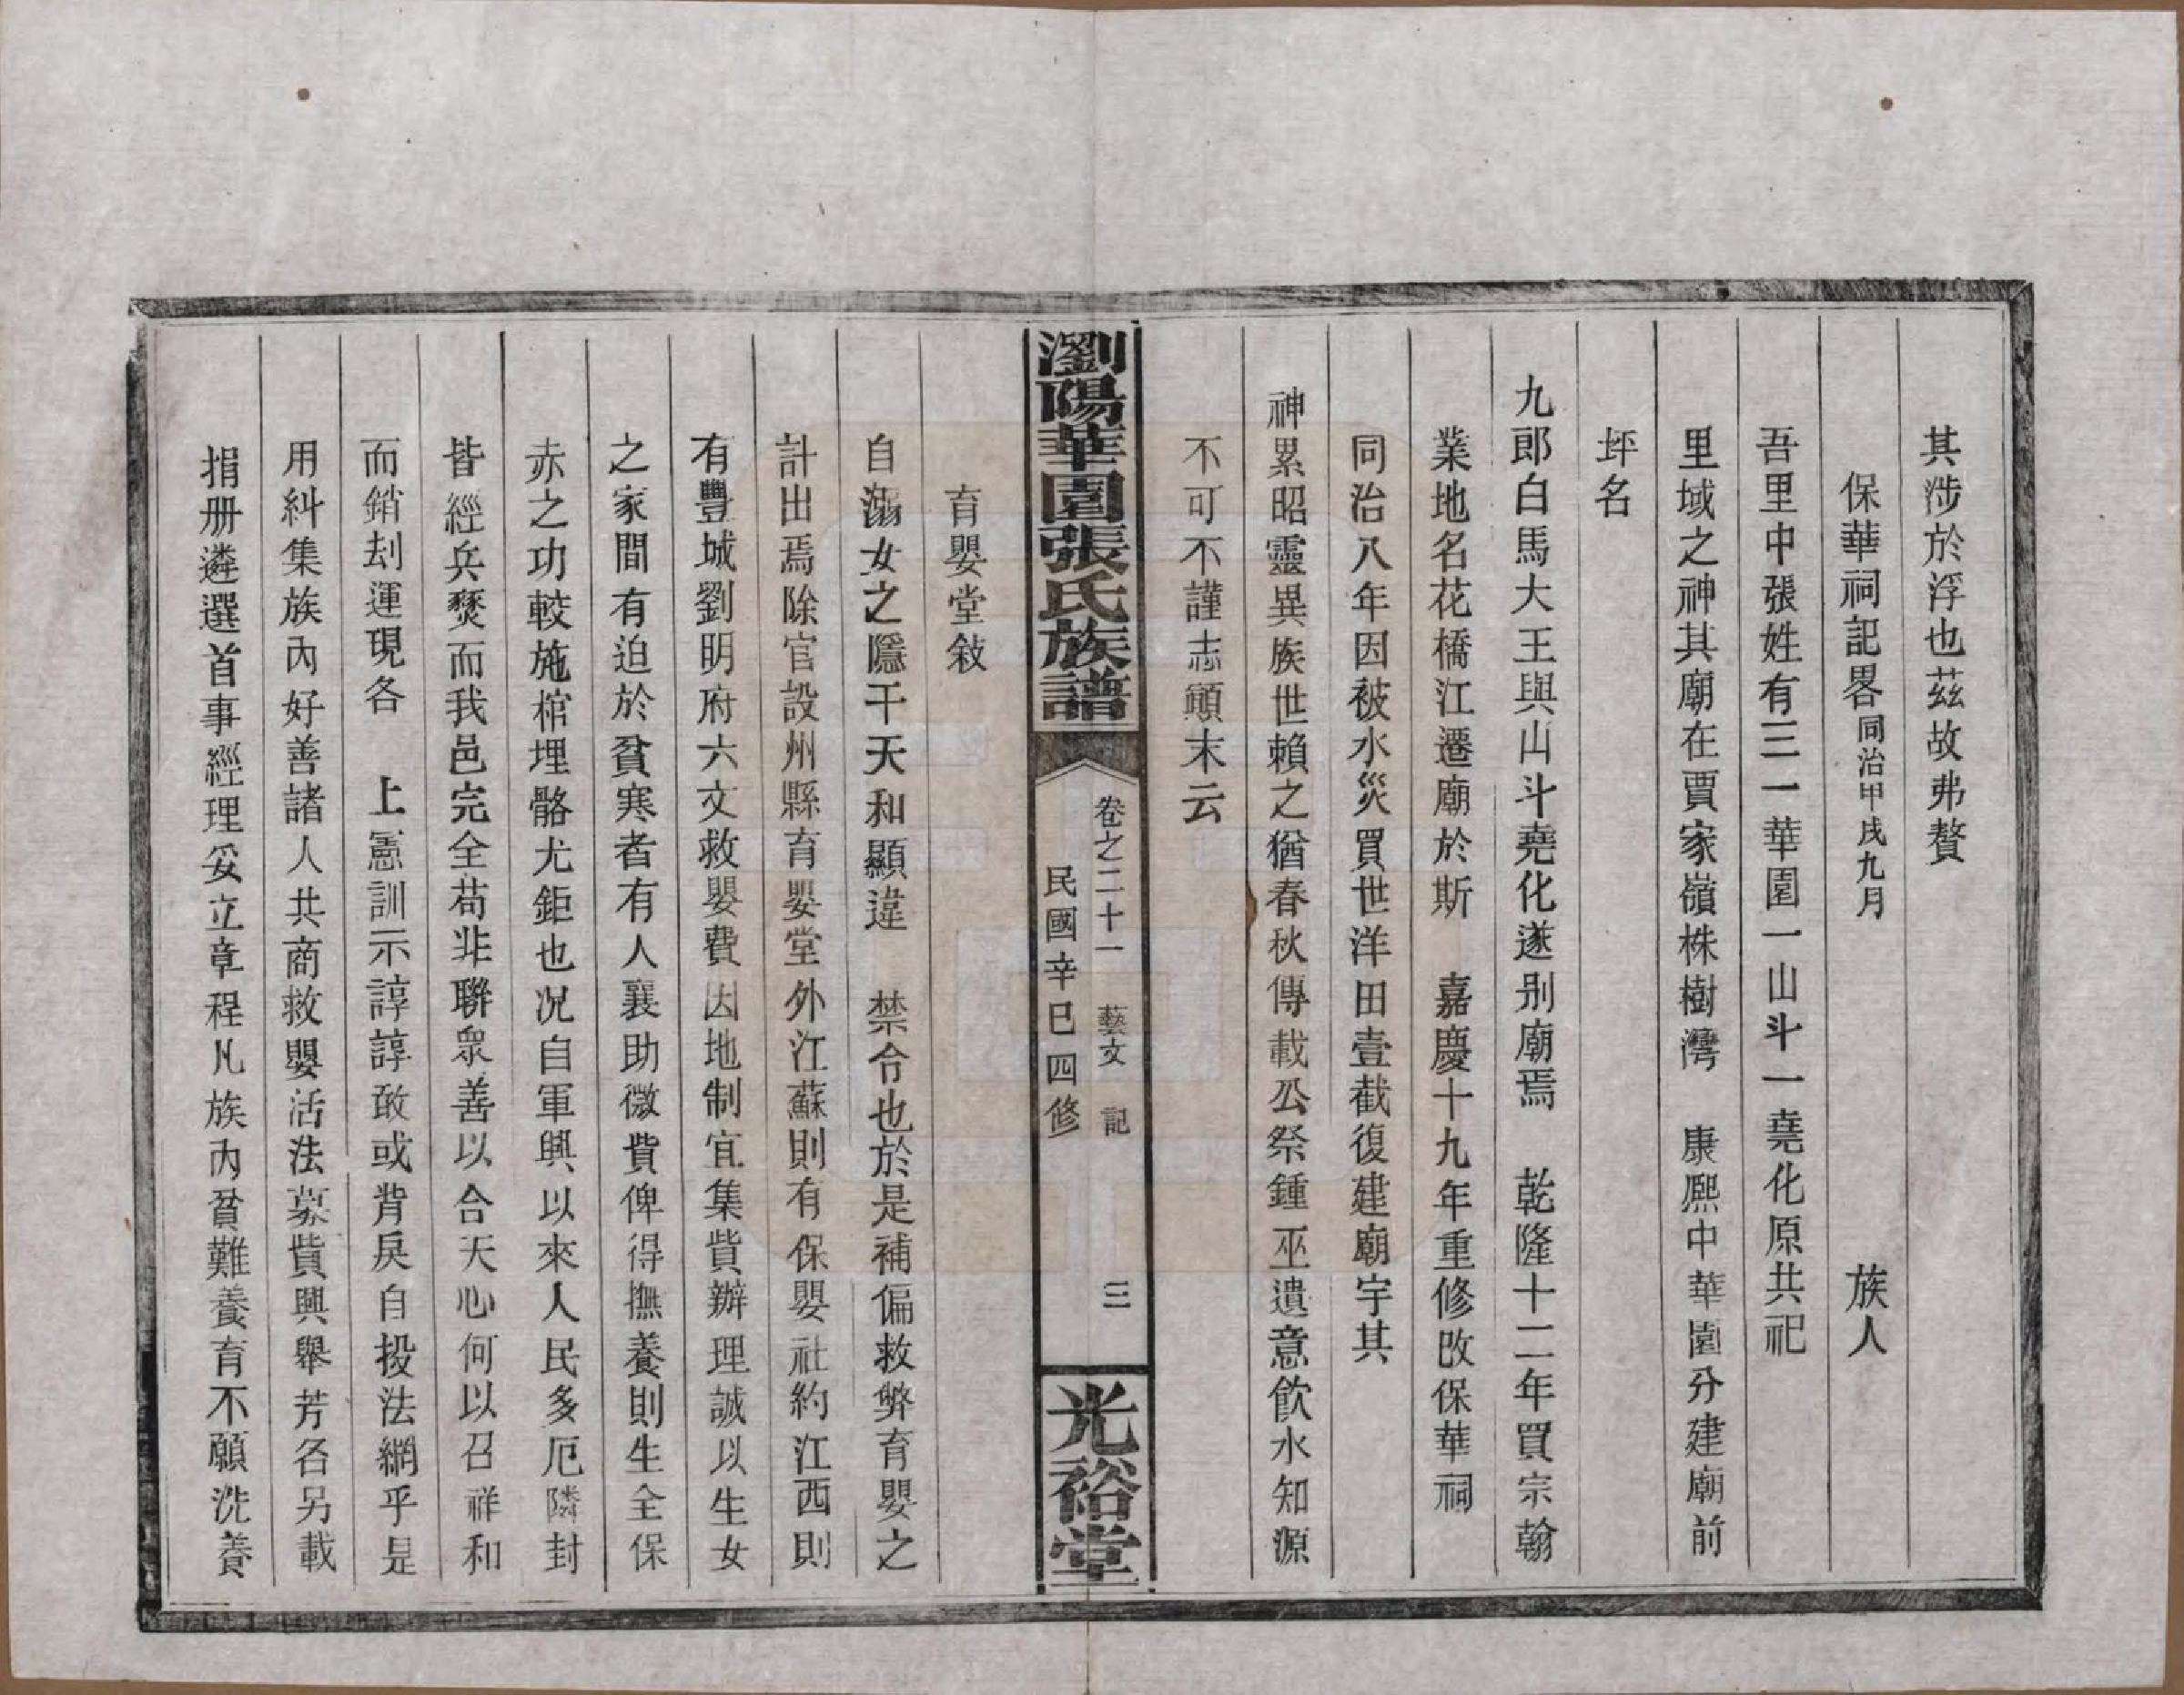 其涉於浮也茲故弗贅
保華祠記畧同治甲戌九月 族人
吾里中張姓有三一華園一山斗一堯化原共祀
里域之神其廟在賈家嶺株樹灣 康熙中華園分建廟前
坪名
九郎白馬大王與山斗堯化遂别廟焉 乾隆十二年買宗翰
業地名花橋江遷廟於斯 嘉慶十九年重修改保華祠
同治八年因被水災買世洋田壹截復建廟宇其
神累昭靈異族世賴之猶春秋傳載公祭鍾巫遺意飲水知源
不可不謹志顚末云
瀏陽華園張氏族譜
卷之二十一 藝文 記 三
民國辛巳四修
光裕堂
育嬰堂敍
自溺女之隱干天和顯違 禁令也於是補偏救弊育嬰之
計出焉除官設州縣育嬰堂外江蘇則有保嬰社約江西則
有豐城劉明府六文救嬰費因地制宜集貲辦理誠以生女
之家間有迫於貧寒者有人襄助微費俾得撫養則生全保
赤之功較施棺埋骼尤鉅也况自軍興以來人民多厄隣封
皆經兵燹而我邑完全苟非聯眾善以合天心何以召祥和
而銷刦運現各 上憲訓示諄諄敢或背戾自投法網乎是
用糾集族內好善諸人共商救嬰活法募貲興舉芳名另載
捐册遴選首事經理妥立章程凡族內貧難養育不願洗養